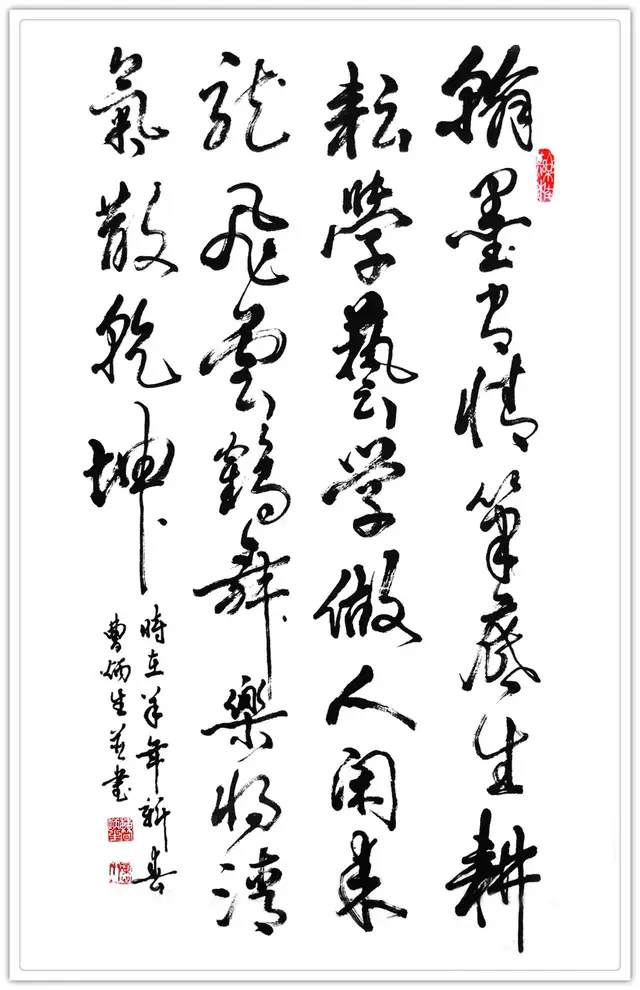 翰墨寄情筆底生耕
耘學藝学做人閑来
龍飛雲鶴舞樂将清
氣散乾坤
時在羊年新春
曹炳生並書